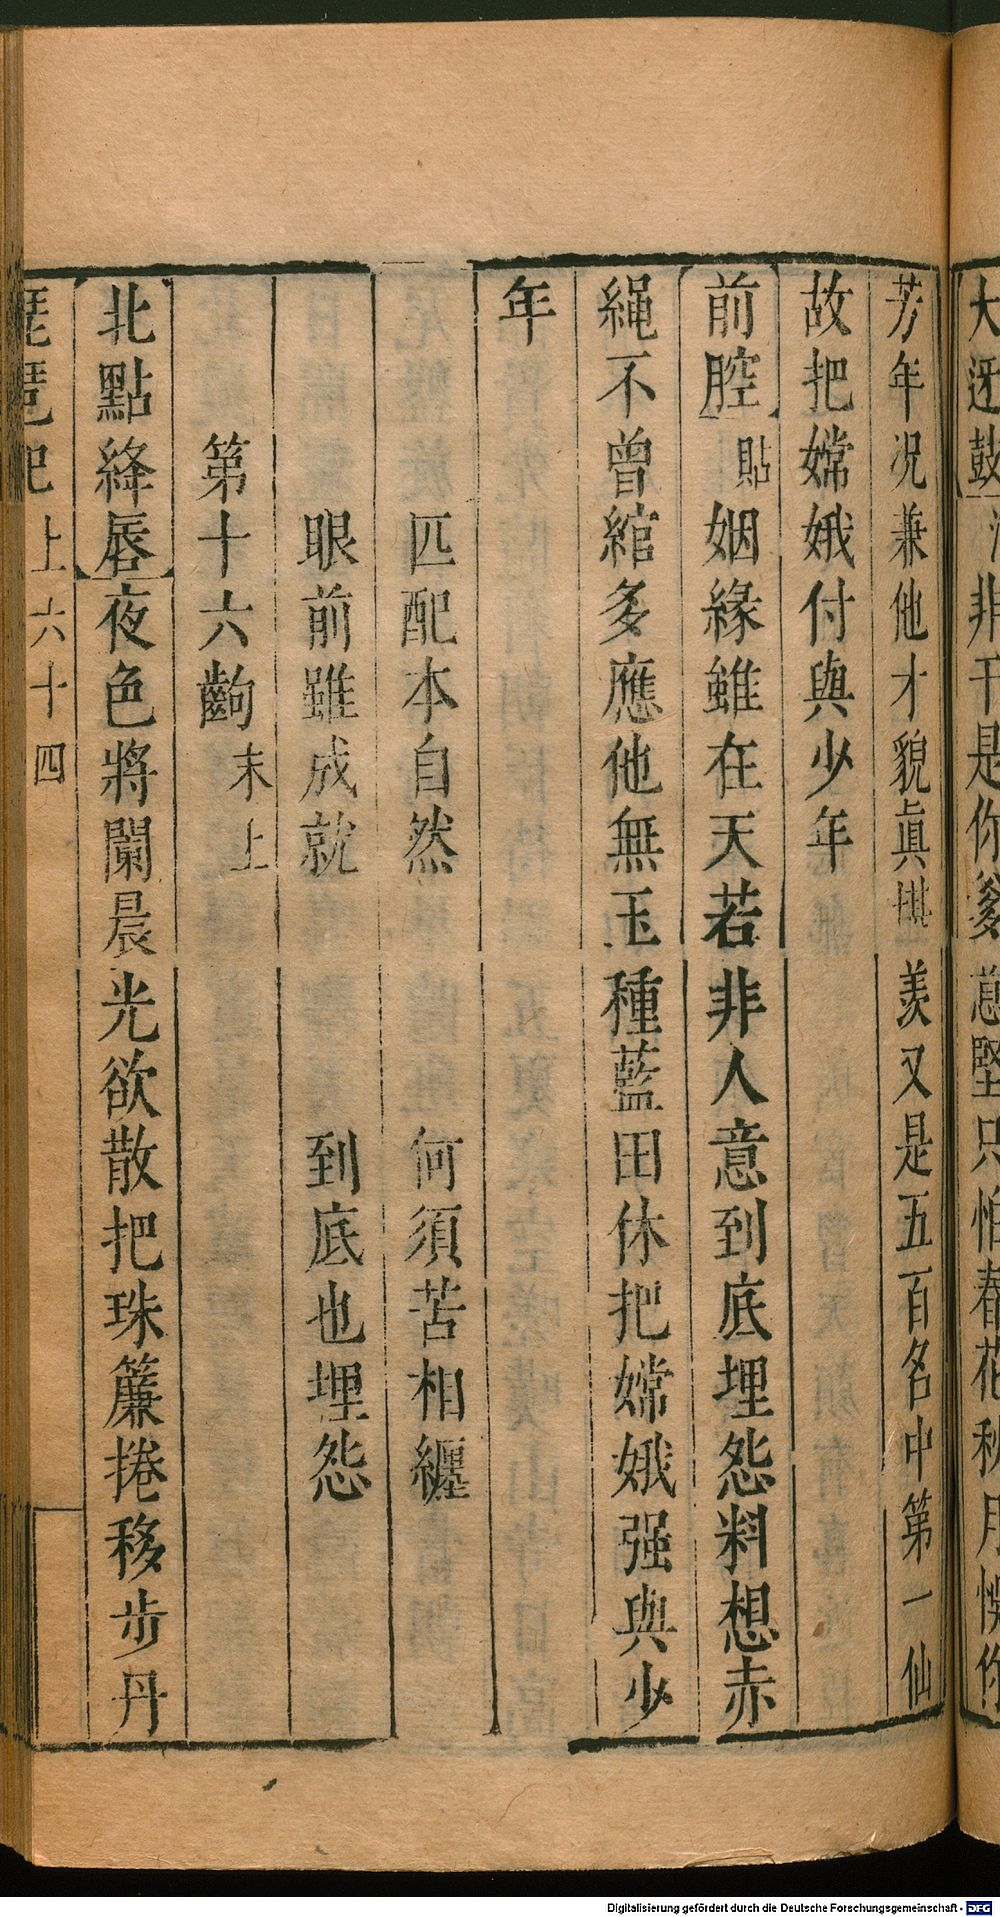 大迓鼓
非干是你爹意堅只怕春花秋月悞你
芳年况兼他才貌真堪羨又是五百名中第一仙
故把嫦娥付與少年
前腔 貼 姻緣雖在天若非人意到底埋怨料想赤
繩不曾綰多應他無玉種藍田休把嫦娥强與少
年
匹配本自然 何須苦相纏
眼前雖成就 到底也埋怨
第十六齣 末上
北點絳唇 夜色將闌晨光欲散把珠簾捲移步丹
琵琶記 上 六十四
Digitalisierung gefördert durch die Deutsche Forschungsgemeinschaft - DFG